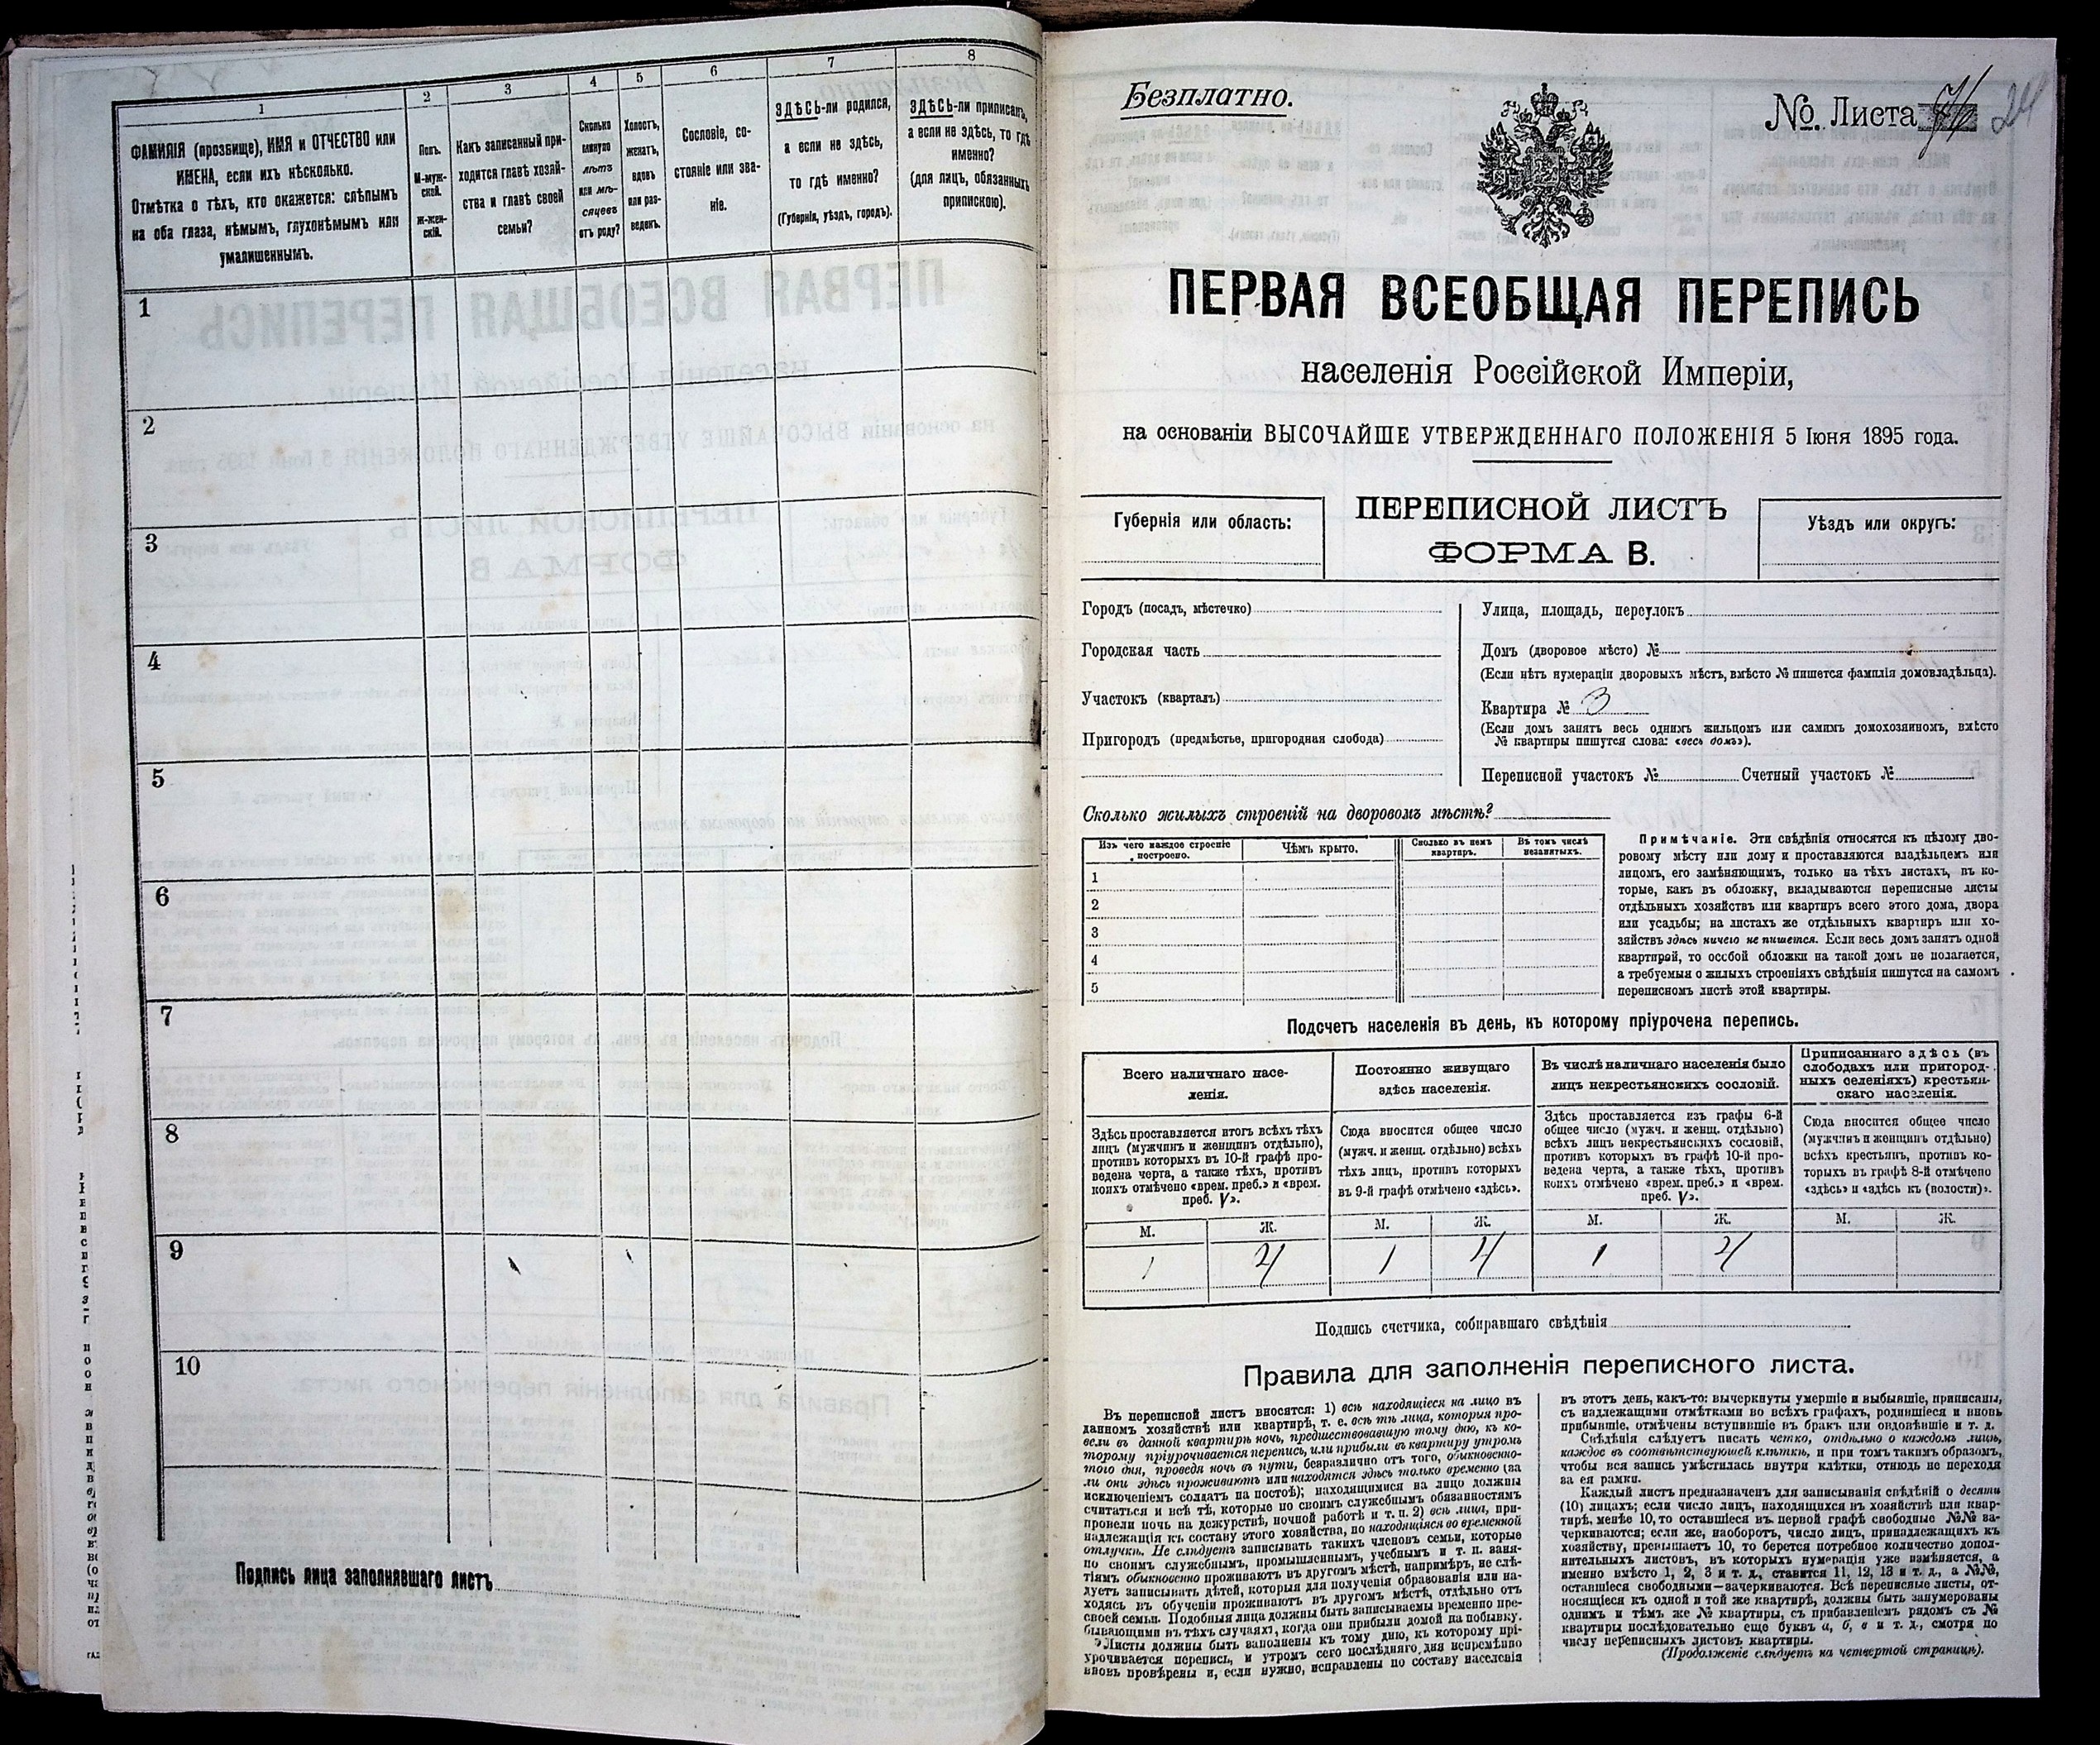 1 2 3 4 5 6 7 8
ФАМИЛІЯ (прозбище), ИМЯ и ОТЧЕСТВО или
ИМЕНА, если ихъ нѣсколько.
Отмѣтка о тѣхъ, кто окажется: слѣпымъ
на оба глаза, нѣмымъ, глухонѣмымъ или
умалишеннымъ.
Полъ.
М-муж-
ской.
Ж-жен-
скій.
Какъ записанный при-
ходится главѣ хозяй-
ства и главѣ своей
семьи?
Сколько
минуло
лѣтъ
или мѣ-
сяцевъ
отъ роду?
Холостъ,
женатъ,
вдовъ
или раз-
веденъ.
Сословіе, со-
стояніе или зва-
ніе.
ЗДѢСЬ-ли родился,
а если не здѣсь,
то гдѣ именно?
(Губернія, уѣздъ, городъ).
ЗДѢСЬ-ли приписанъ,
а если не здѣсь, то гдѣ
именно?
(для лицъ, обязанныхъ
припискою).
1
2
3
4
5
6
7
8
9
10
Подпись лица заполнявшаго листъ
Безплатно.
№. Листа 24
ПЕРВАЯ ВСЕОБЩАЯ ПЕРЕПИСЬ
населенія Россійской Имперіи,
на основаніи ВЫСОЧАЙШЕ УТВЕРЖДЕННАГО ПОЛОЖЕНІЯ 5 Іюня 1895 года.
Губернія или область:
ПЕРЕПИСНОЙ ЛИСТЪ
ФОРМА В.
Уѣздъ или округъ:
Городъ (посадъ, мѣстечко)
Городская часть
Участокъ (кварталъ)
Пригородъ (предмѣстье, пригородная слобода)
Улица, площадь, переулокъ
Домъ (дворовое мѣсто) №
(Если нѣтъ нумераціи дворовыхъ мѣстъ, вмѣсто № пишется фамилія домовладѣльца).
Квартира № 3
(Если домъ занятъ весь однимъ жильцомъ или самимъ домохозяиномъ, вмѣсто
№ квартиры пишутся слова: «весь домъ»).
Переписной участокъ № Счетный участокъ №
Сколько жилыхъ строеній на дворовомъ мѣстѣ?
Изъ чего каждое строеніе
построено.
Чѣмъ крыто.
Сколько въ немъ
квартиръ.
Въ томъ числѣ
незанятыхъ.
1
2
3
4
5
Примѣчаніе. Эти свѣдѣнія относятся къ цѣлому дво-
ровому мѣсту или дому и проставляются владѣльцемъ или
лицомъ, его замѣняющимъ, только на тѣхъ листахъ, въ ко-
торые, какъ въ обложку, вкладываются переписные листы
отдѣльныхъ хозяйствъ или квартиръ всего этого дома, двора
или усадьбы; на листахъ же отдѣльныхъ квартиръ или хо-
зяйствъ здѣсь ничего не пишется. Если весь домъ занятъ одной
квартирой, то особой обложки на такой домъ не полагается,
а требуемыя о жилыхъ строеніяхъ свѣдѣнія пишутся на самомъ
переписномъ листѣ этой квартиры.
Подсчетъ населенія въ день, къ которому пріурочена перепись.
Всего наличнаго насе-
ленія.
Постоянно живущаго
здѣсь населенія.
Въ числѣ наличнаго населенія было
лицъ некрестьянскихъ сословій.
Приписаннаго здѣсь (въ
слободахъ или пригород-
ныхъ селеніяхъ) крестьян-
скаго населенія.
Здѣсь проставляется итогъ всѣхъ тѣхъ
лицъ (мужчинъ и женщинъ отдѣльно),
противъ которыхъ въ 10-й графѣ про-
ведена черта, а также тѣхъ, противъ
коихъ отмѣчено «врем. преб.» и «врем.
преб. V».
Сюда вносится общее число
(мужч. и женщ. отдѣльно) всѣхъ
тѣхъ лицъ, противъ которыхъ
въ 9-й графѣ отмѣчено «здѣсь».
Здѣсь проставляется изъ графы 6-й
общее число (мужч. и женщ. отдѣльно)
всѣхъ лицъ некрестьянскихъ сословій,
противъ которыхъ въ графѣ 10-й про-
ведена черта, а также тѣхъ, противъ
коихъ отмѣчено «врем. преб.» и «врем.
преб. V».
Сюда вносится общее число
(мужчинъ и женщинъ отдѣльно)
всѣхъ крестьянъ, противъ ко-
торыхъ въ графѣ 8-й отмѣчено
«здѣсь» и «здѣсь къ (волости)».
М. Ж. М. Ж. М. Ж. М. Ж.
1 4 1 4 1 4
Подпись счетчика, собиравшаго свѣдѣнія
Правила для заполненія переписного листа.
Въ переписной листъ вносятся: 1) всѣ находящіеся на лицо въ
данномъ хозяйствѣ или квартирѣ, т. е. всѣ тѣ лица, которыя про-
вели въ данной квартирѣ ночь, предшествовавшую тому дню, къ ко-
торому пріурочивается перепись, или прибыли въ квартиру утромъ
того дня, проведя ночь въ пути, безразлично отъ того, обыкновенно-
ли они здѣсь проживаютъ или находятся здѣсь только временно (за
исключеніемъ солдатъ на постоѣ); находящимися на лицо должны
считаться и всѣ тѣ, которые по своимъ служебнымъ обязанностямъ
провели ночь на дежурствѣ, ночной работѣ и т. п. 2) всѣ лица, при-
надлежащія къ составу этого хозяйства, но находящіяся во временной
отлучкѣ. Не слѣдуетъ записывать такихъ членовъ семьи, которые
по своимъ служебнымъ, промышленнымъ, учебнымъ и т. п. заня-
тіямъ обыкновенно проживаютъ въ другомъ мѣстѣ, напримѣръ, не слѣ-
дуетъ записывать дѣтей, которыя для полученія образованія или на-
ходясь въ обученіи проживаютъ въ другомъ мѣстѣ, отдѣльно отъ
своей семьи. Подобныя лица должны быть записываемы временно пре-
бывающими въ тѣхъ случаяхъ, когда они прибыли домой на побывку.
Листы должны быть заполнены къ тому дню, къ которому прі-
урочивается перепись, и утромъ сего послѣдняго дня непремѣнно
вновь провѣрены и, если нужно, исправлены по составу населенія
въ этотъ день, какъ-то: вычеркнуты умершіе и выбывшіе, приписаны,
съ надлежащими отмѣтками во всѣхъ графахъ, родившіеся и вновь
прибывшіе, отмѣчены вступившіе въ бракъ или овдовѣвшіе и т. д.
Свѣдѣнія слѣдуетъ писать четко, отдѣльно о каждомъ лицѣ,
каждое въ соотвѣтствующей клѣткѣ, и при томъ такимъ образомъ,
чтобы вся запись умѣстилась внутри клѣтки, отнюдь не переходя
за ея рамки.
Каждый листъ предназначенъ для записыванія свѣдѣній о десяти
(10) лицахъ; если число лицъ, находящихся въ хозяйствѣ или квар-
тирѣ, менѣе 10, то оставшіеся въ первой графѣ свободные №№ за-
черкиваются; если же, наоборотъ, число лицъ, принадлежащихъ къ
хозяйству, превышаетъ 10, то берется потребное количество допол-
нительныхъ листовъ, въ которыхъ нумерація уже измѣняется, а
именно вмѣсто 1, 2, 3 и т. д., ставится 11, 12, 13 и т. д., а №№,
оставшіеся свободными—зачеркиваются. Всѣ переписные листы, от-
носящіеся къ одной и той же квартирѣ, должны быть занумерованы
однимъ и тѣмъ же № квартиры, съ прибавленіемъ рядомъ съ №
квартиры послѣдовательно еще буквъ а, б, в и т. д., смотря по
числу переписныхъ листовъ квартиры.
(Продолженіе слѣдуетъ на четвертой страницѣ).